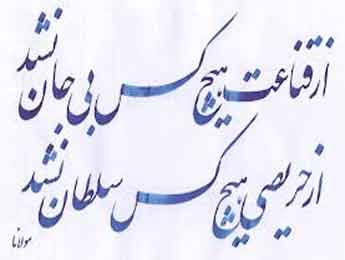 از قناعت هیچ کس بی جان نشد
از حریصی هیچ کس سلطان نشد
مولانا